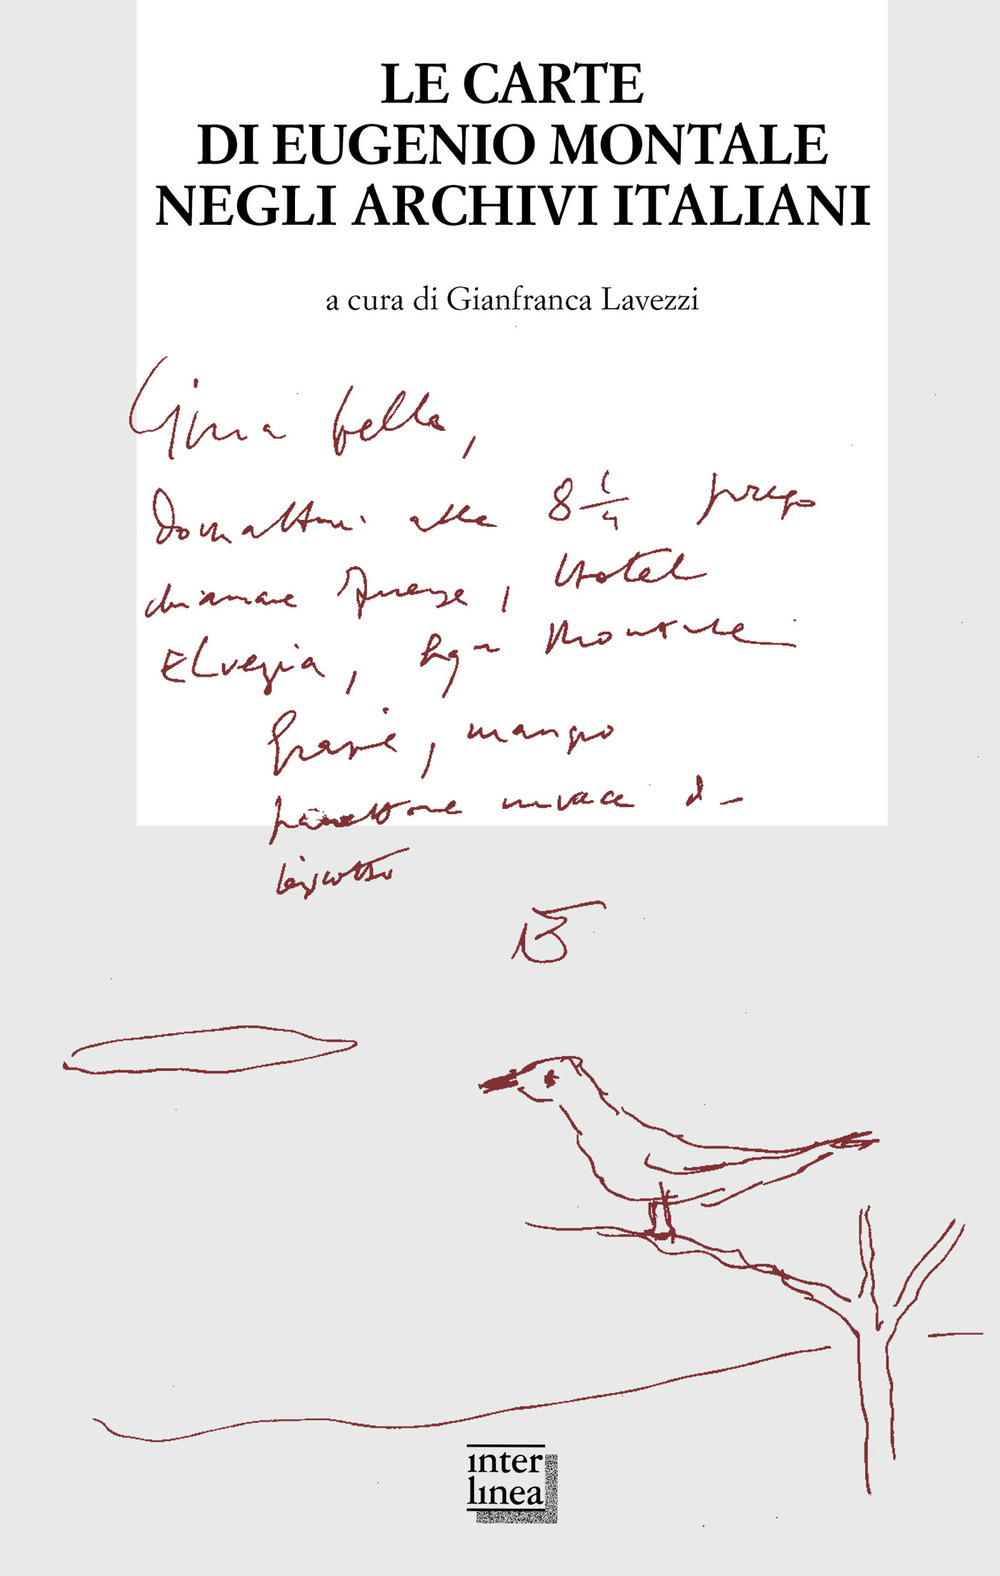 LE CARTE
DI EUGENIO MONTALE
NEGLI ARCHIVI ITALIANI
a cura di Gianfranca Lavezzi
Gina bella,
Domattina alle 8 1/4 prego
chiamare Firenze, Hotel
Elvezia, Sigr Montale
Grazie, mangio
panettone invece di
biscotto
inter
linea